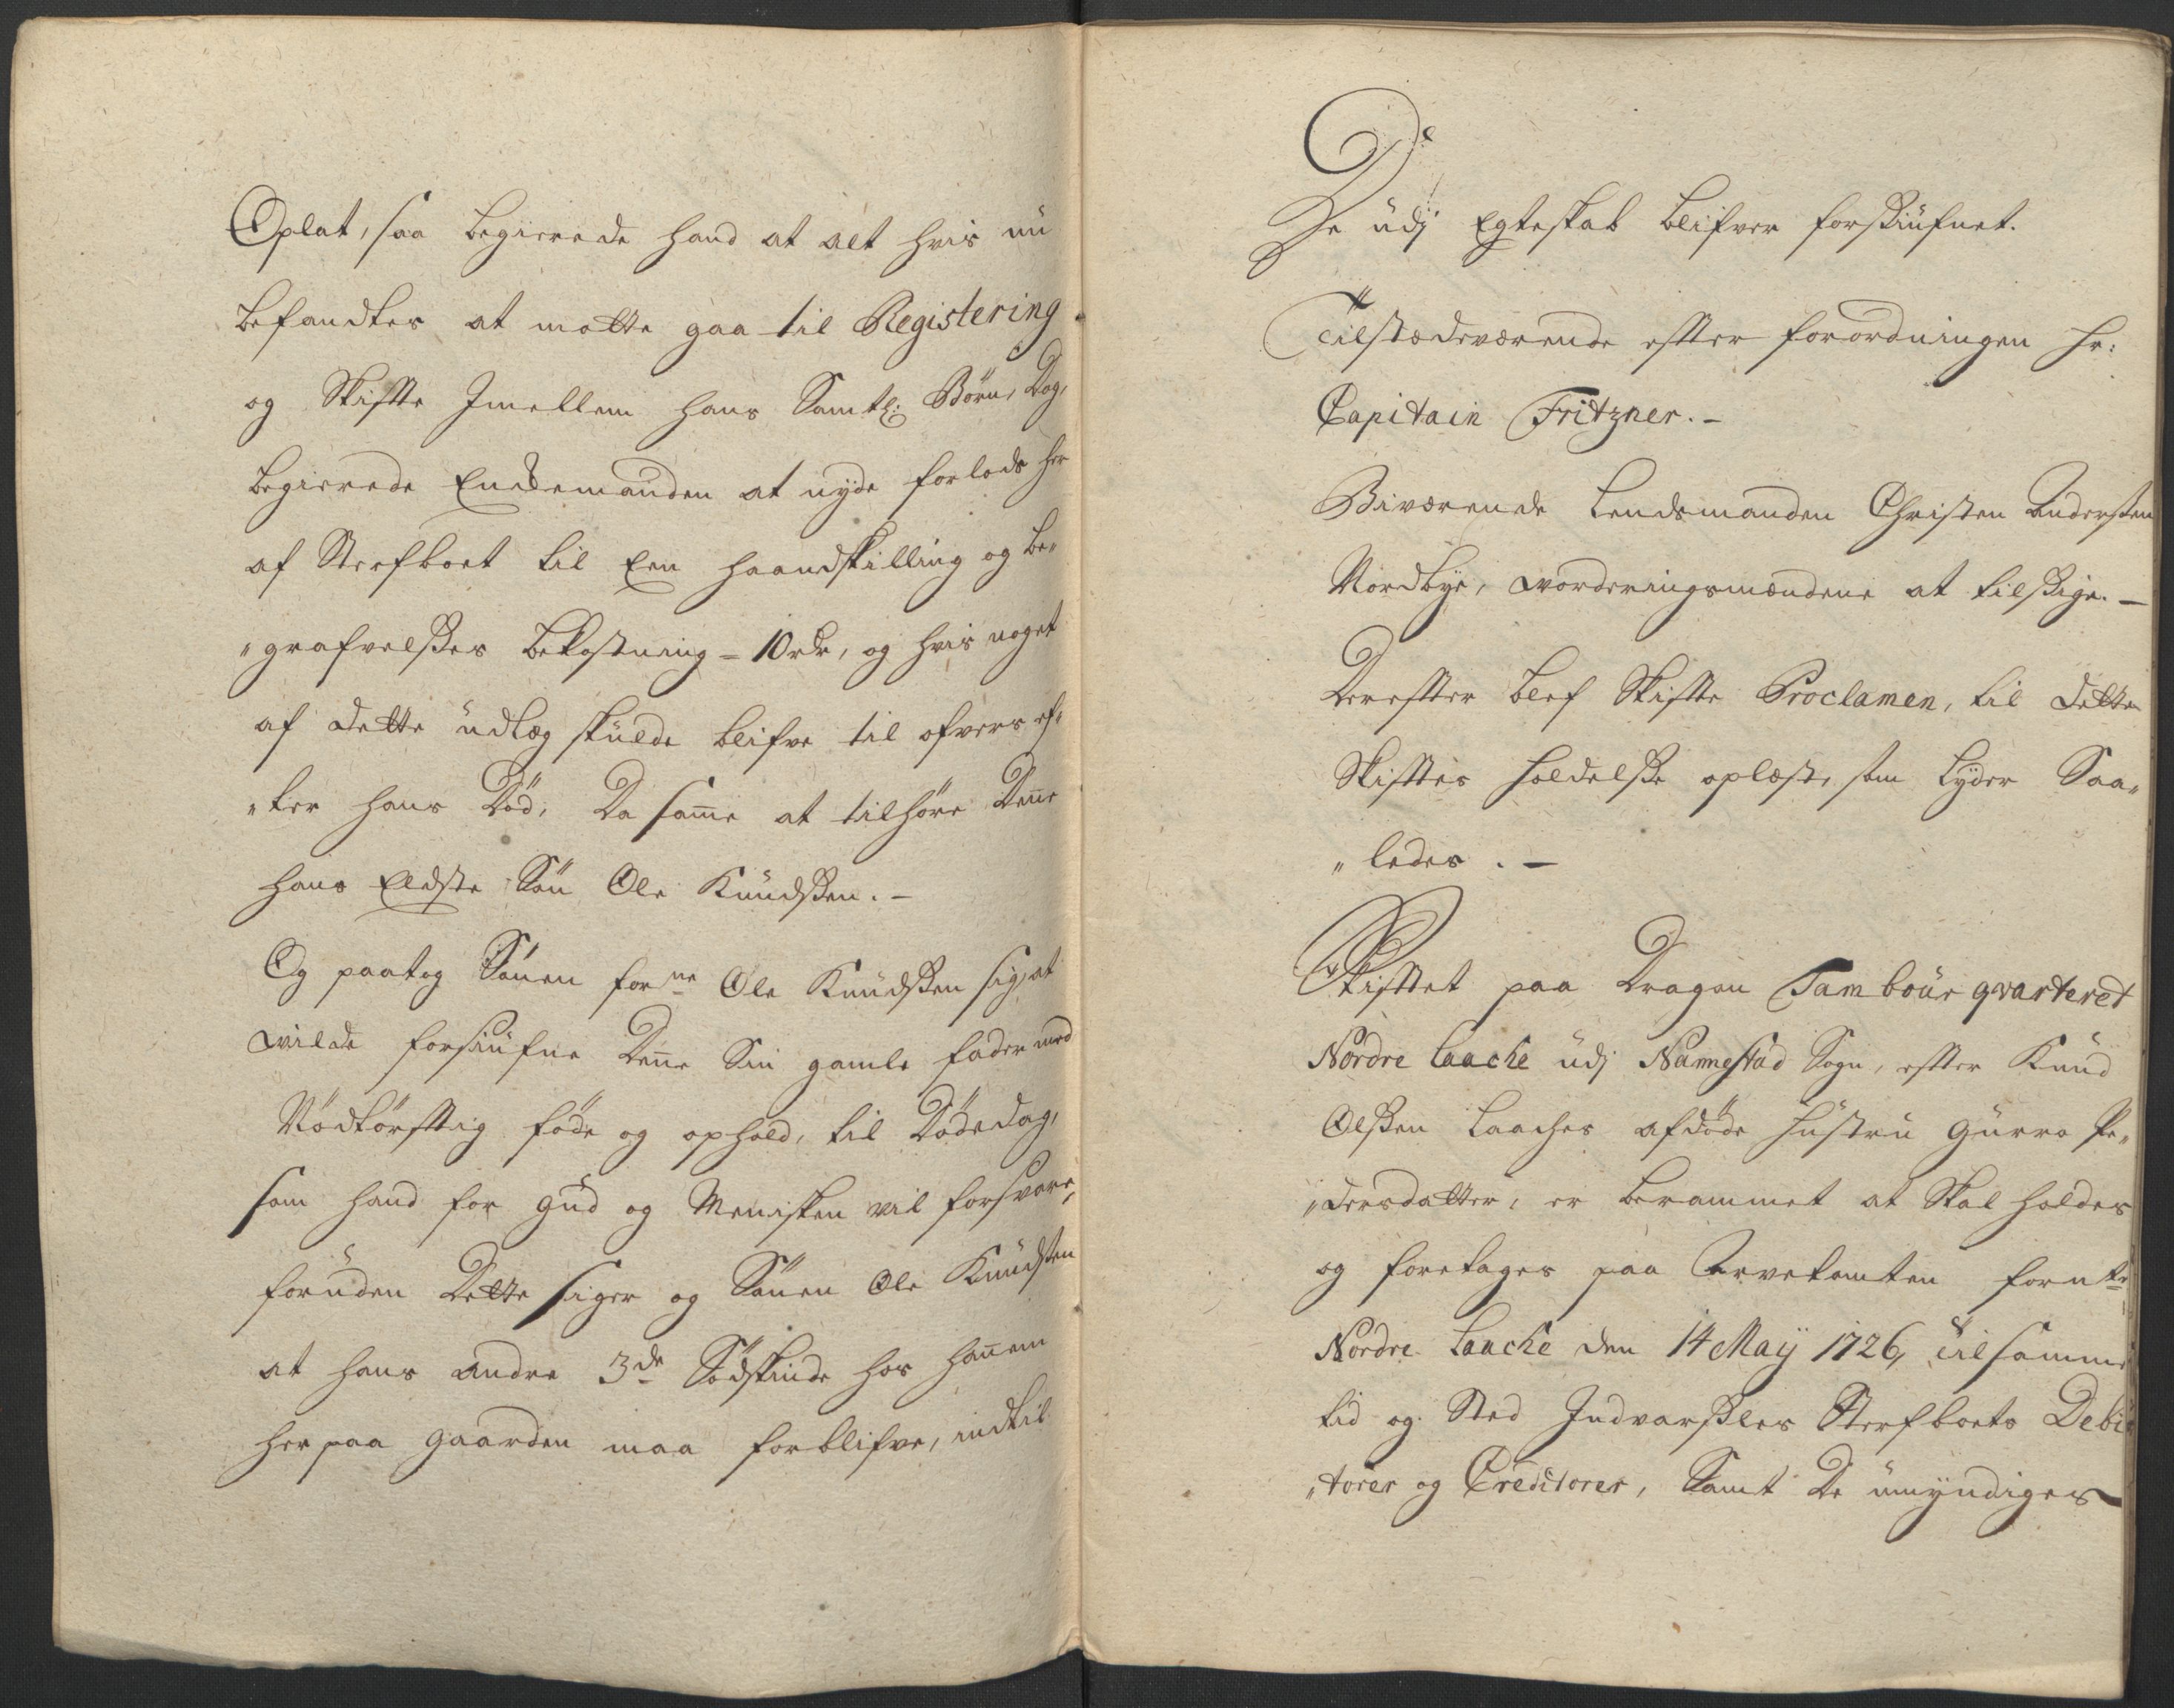 Oplat, saa begierede hand at alt hvis nu
befandtes at motte gaa til Registering
og Skiffte Jmellem hans Samtl: Börn, Dog,
begierede Enckemanden at nyde forlods her
af Sterfboet til Een haandskilling og be„
„grafvelsses bekostning - 10 rdr, og hvis noget
af dette udlæg skulde blifve til ofvers ef„
„ter hans Död, Da samme at tilhöre Denne
hans Eldste Sön Ole Knudssen. -
Og paatog Sönen forne Ole Knudssen sig, at
wilde forsiufne Denne Sin gamle fader med
Nödtörfftig föde og ophold, til Dödedag,
som hand for Gud og Menisken vil forsvare,
foruden Dette siger og Sönen Ole Knudssen
at hans andre 3de Södskinde hos hannem
her paa gaarden maa forblifve, indtil
De
De udj Egteskab blifver forsiufnet.
Tilstædeværende effter forordningen Hr:
Capitain Fritzner. -
Biværende Lendsmanden Christen Anderssen
Nordbye, worderingsmændene at tilssige. -
Dereffter blef Skiffte Proclamen, til dette
Skifftes holdelsse oplæst, som lyder Saa„
„ledes. -
Skifftet paa Dragon Tambour qvarteret
Nordre Laache udj Nannestad Sogn, effter Knud
Olssen Laaches afdöde hustru Gurro Pe„
„dersdatter, er berammet at Skal holdes
og foretages paa Arvetomten fornte
Nordre Laache den 14 Maij 1726, til samme
tid og Sted Indvarssles Sterfboets Debi„
„torer og Creditorer, Samt De umyndiges